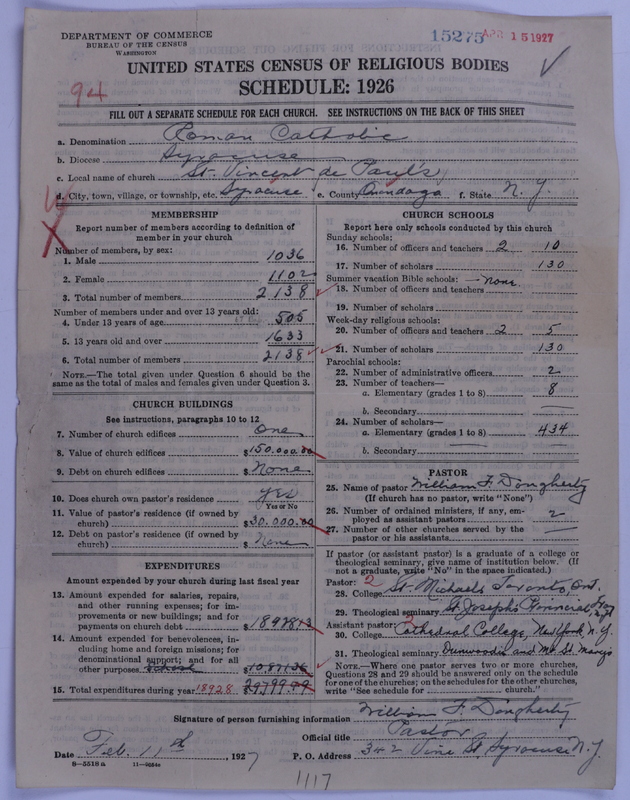 DEPARTMENT OF COMMERCE
BUREAU OF THE CENSUS
WASHINGTON
15275 APR 15 1927
UNITED STATES CENSUS OF RELIGIOUS BODIES
SCHEDULE: 1926
94
FILL OUT A SEPARATE SCHEDULE FOR EACH CHURCH. SEE INSTRUCTIONS ON THE BACK OF THIS SHEET
a. Denomination Roman Catholic
b. Diocese Syracuse
c. Local name of church St. Vincent de Paul's
d. City, town, village, or township, etc. Syracuse e. County Onondaga f. State N. Y.
MEMBERSHIP
Report number of members according to definition of
member in your church
Number of members, by sex:
1. Male 1036
2. Female 1102
3. Total number of members 2138
Number of members under and over 13 years old:
4. Under 13 years of age 505
5. 13 years old and over 1633
6. Total number of members 2138
NOTE.—The total given under Question 6 should be the
same as the total of males and females given under Question 3.
CHURCH BUILDINGS
See instructions, paragraphs 10 to 12
7. Number of church edifices One
8. Value of church edifices $150.000.00
9. Debt on church edifices $None
10. Does church own pastor's residence yes
Yes or No
11. Value of pastor's residence (if owned by
church) $30.000.00
12. Debt on pastor's residence (if owned by
church) $None
EXPENDITURES
Amount expended by your church during last fiscal year
13. Amount expended for salaries, repairs,
and other running expenses; for im-
provements or new buildings; and for
payments on church debt $18928.13
14. Amount expended for benevolences, in-
cluding home and foreign missions; for
denominational support; and for all
other purposes School $10.871.36
15. Total expenditures during year 18928 29799.49
CHURCH SCHOOLS
Report here only schools conducted by this church
Sunday schools:
16. Number of officers and teachers 2 10
17. Number of scholars 130
Summer vacation Bible schools: — None
18. Number of officers and teachers
19. Number of scholars
Week-day religious schools:
20. Number of officers and teachers 2 5
21. Number of scholars 130
Parochial schools:
22. Number of administrative officers 2
23. Number of teachers—
a. Elementary (grades 1 to 8) 8
b. Secondary —
24. Number of scholars—
a. Elementary (grades 1 to 8) 434
b. Secondary —
PASTOR
25. Name of pastor William F. Dougherty
(If church has no pastor, write "None")
26. Number of ordained ministers, if any, em-
ployed as assistant pastors 2
27. Number of other churches served by the
pastor or his assistants —
If pastor (or assistant pastor) is a graduate of a college or
theological seminary, give name of institution below. (If
not a graduate, write "No" in the space indicated.)
Pastor: 2
28. College St. Michaels Toronto, Ont.
29. Theological seminary St. Josephs Provincial Troy N.Y.
Assistant pastor:
30. College Cathedral College, New York, N. Y.
31. Theological seminary Dunwoodie and Mt. St. Mary's
NOTE.—Where one pastor serves two or more churches,
Questions 28 and 29 should be answered only on the schedule
for one of the churches; on the schedules for the other churches,
write "See schedule for church."
Signature of person furnishing information William F. Dougherty
Official title Pastor
Date Feb. 11th, 1927 P. O. Address 342 Vine St Syracuse N. Y.
8—5518a 11—9654c
1117